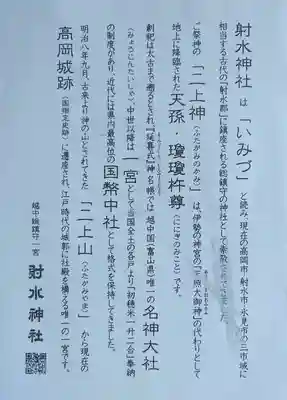 射水神社 は「いみづ」と読み、現在の高岡市・射水市・氷見市の三市域に
相当する古代の『射水郡』に鎮座される総鎮守の神社として崇敬されてきました。
ご祭神の「二上神(ふたがみのかみ)」は、伊勢の神宮の「天照大御神」の代わりとして
地上に降臨された天孫・瓊瓊杵尊(ににぎのみこと)です。
創祀は太古まで遡るとされ、『延喜式』神名帳では越中国(富山県)唯一の名神大社
(みょうじんたいしゃ)、中世以降は一宮として当国全土の各戸より「初穂米一升二合」奉納
の制度があり、近代には県内最高位の国幣中社として格式を保持してきました。
明治八年九月、古来より神の山とされてきた「二上山(ふたがみやま)」から現在の
高岡城跡(国指定史跡)に遷座され、江戸時代の城郭に社殿を構える唯一の一宮です。
越中総鎮守一宮 射水神社